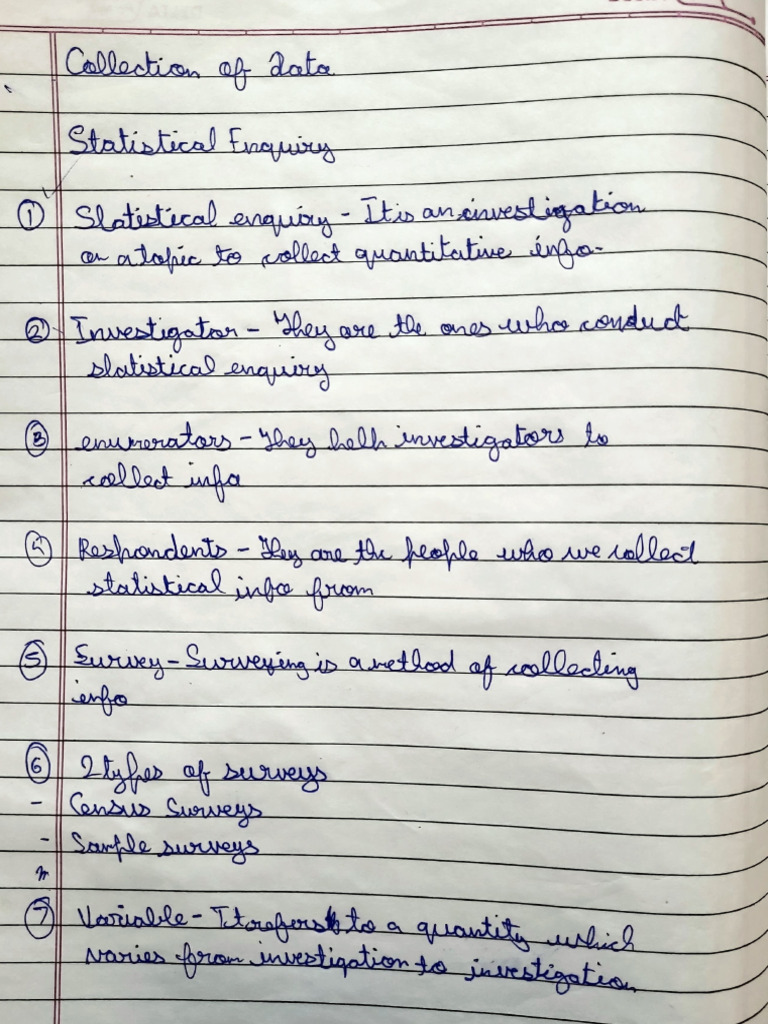 Collection of data
Statistical Enquiry
① Statistical enquiry - It is an investigation
on a topic to collect quantitative info-
② Investigator - They are the ones who conduct
statistical enquiry
③ enumerators - They help investigators to
collect info
④ Respondents - They are the people who we collect
statistical info from
⑤ Survey - Surveying is a method of collecting
info
⑥ 2 types of surveys
- Census Surveys
- Sample surveys
⑦ Variable - It refers to a quantity which
varies from investigation to investigation